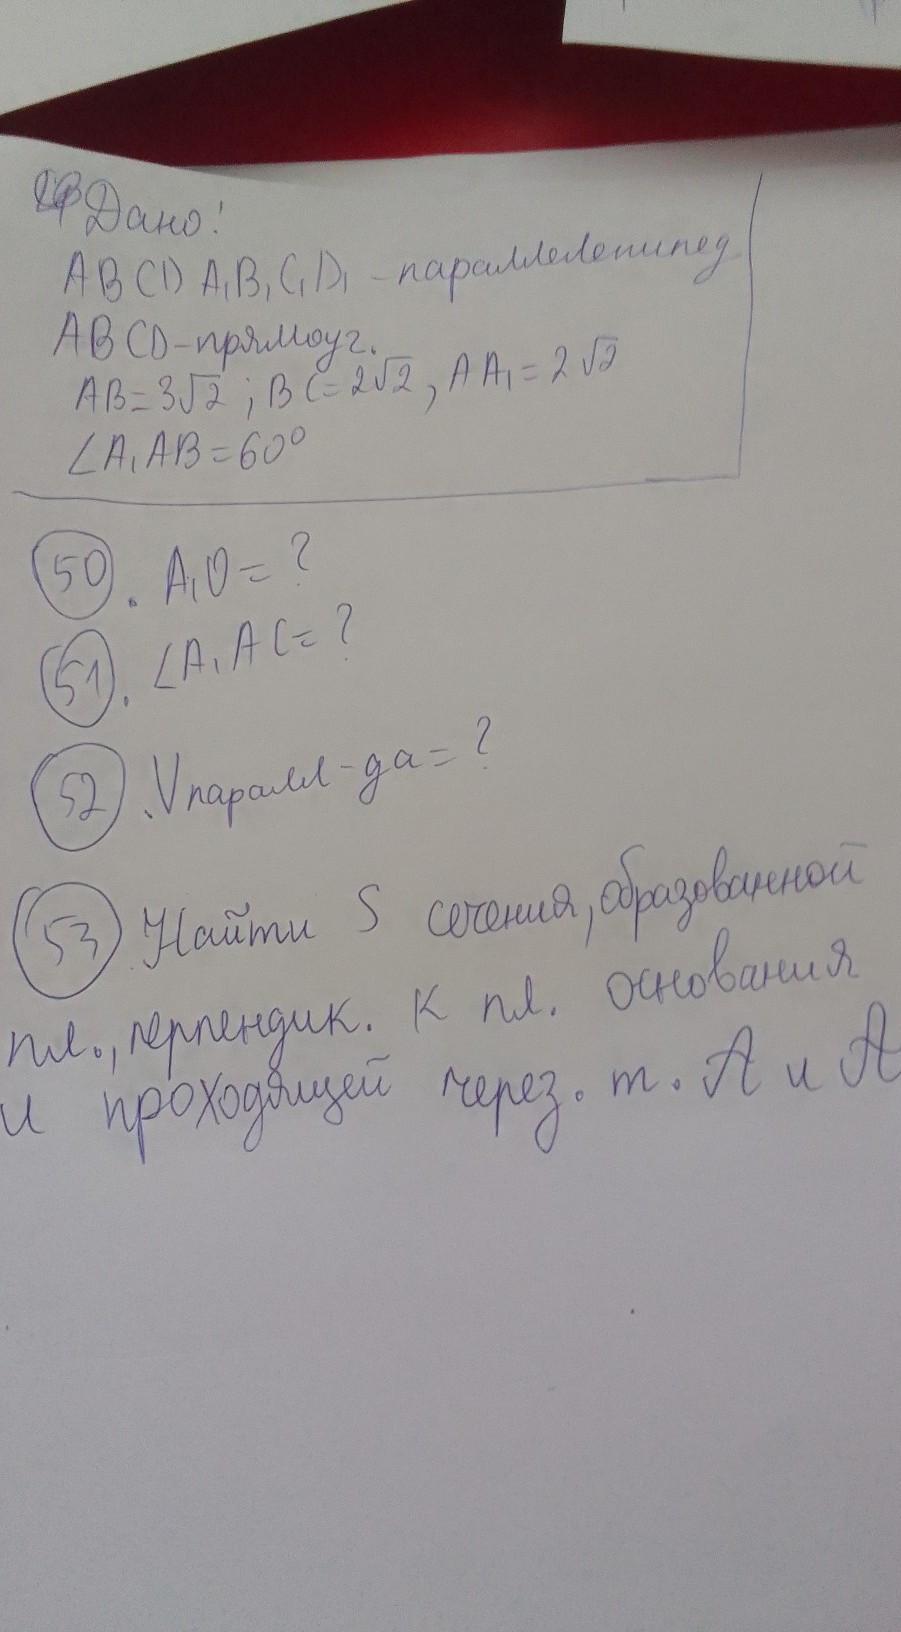 Дано!
ABCD A₁B₁C₁D₁ - параллелепипед
ABCD - прямоуг.
AB = 3√2 ; BC = 2√2 , AA₁ = 2√2
∠A₁AB = 60°
50. A₁O = ?
51. ∠A₁AC = ?
52. Vпаралл-да = ?
53 Найти S сечения, образованной
пл., перпендик. к пл. основания
и проходящей через. т. A и A